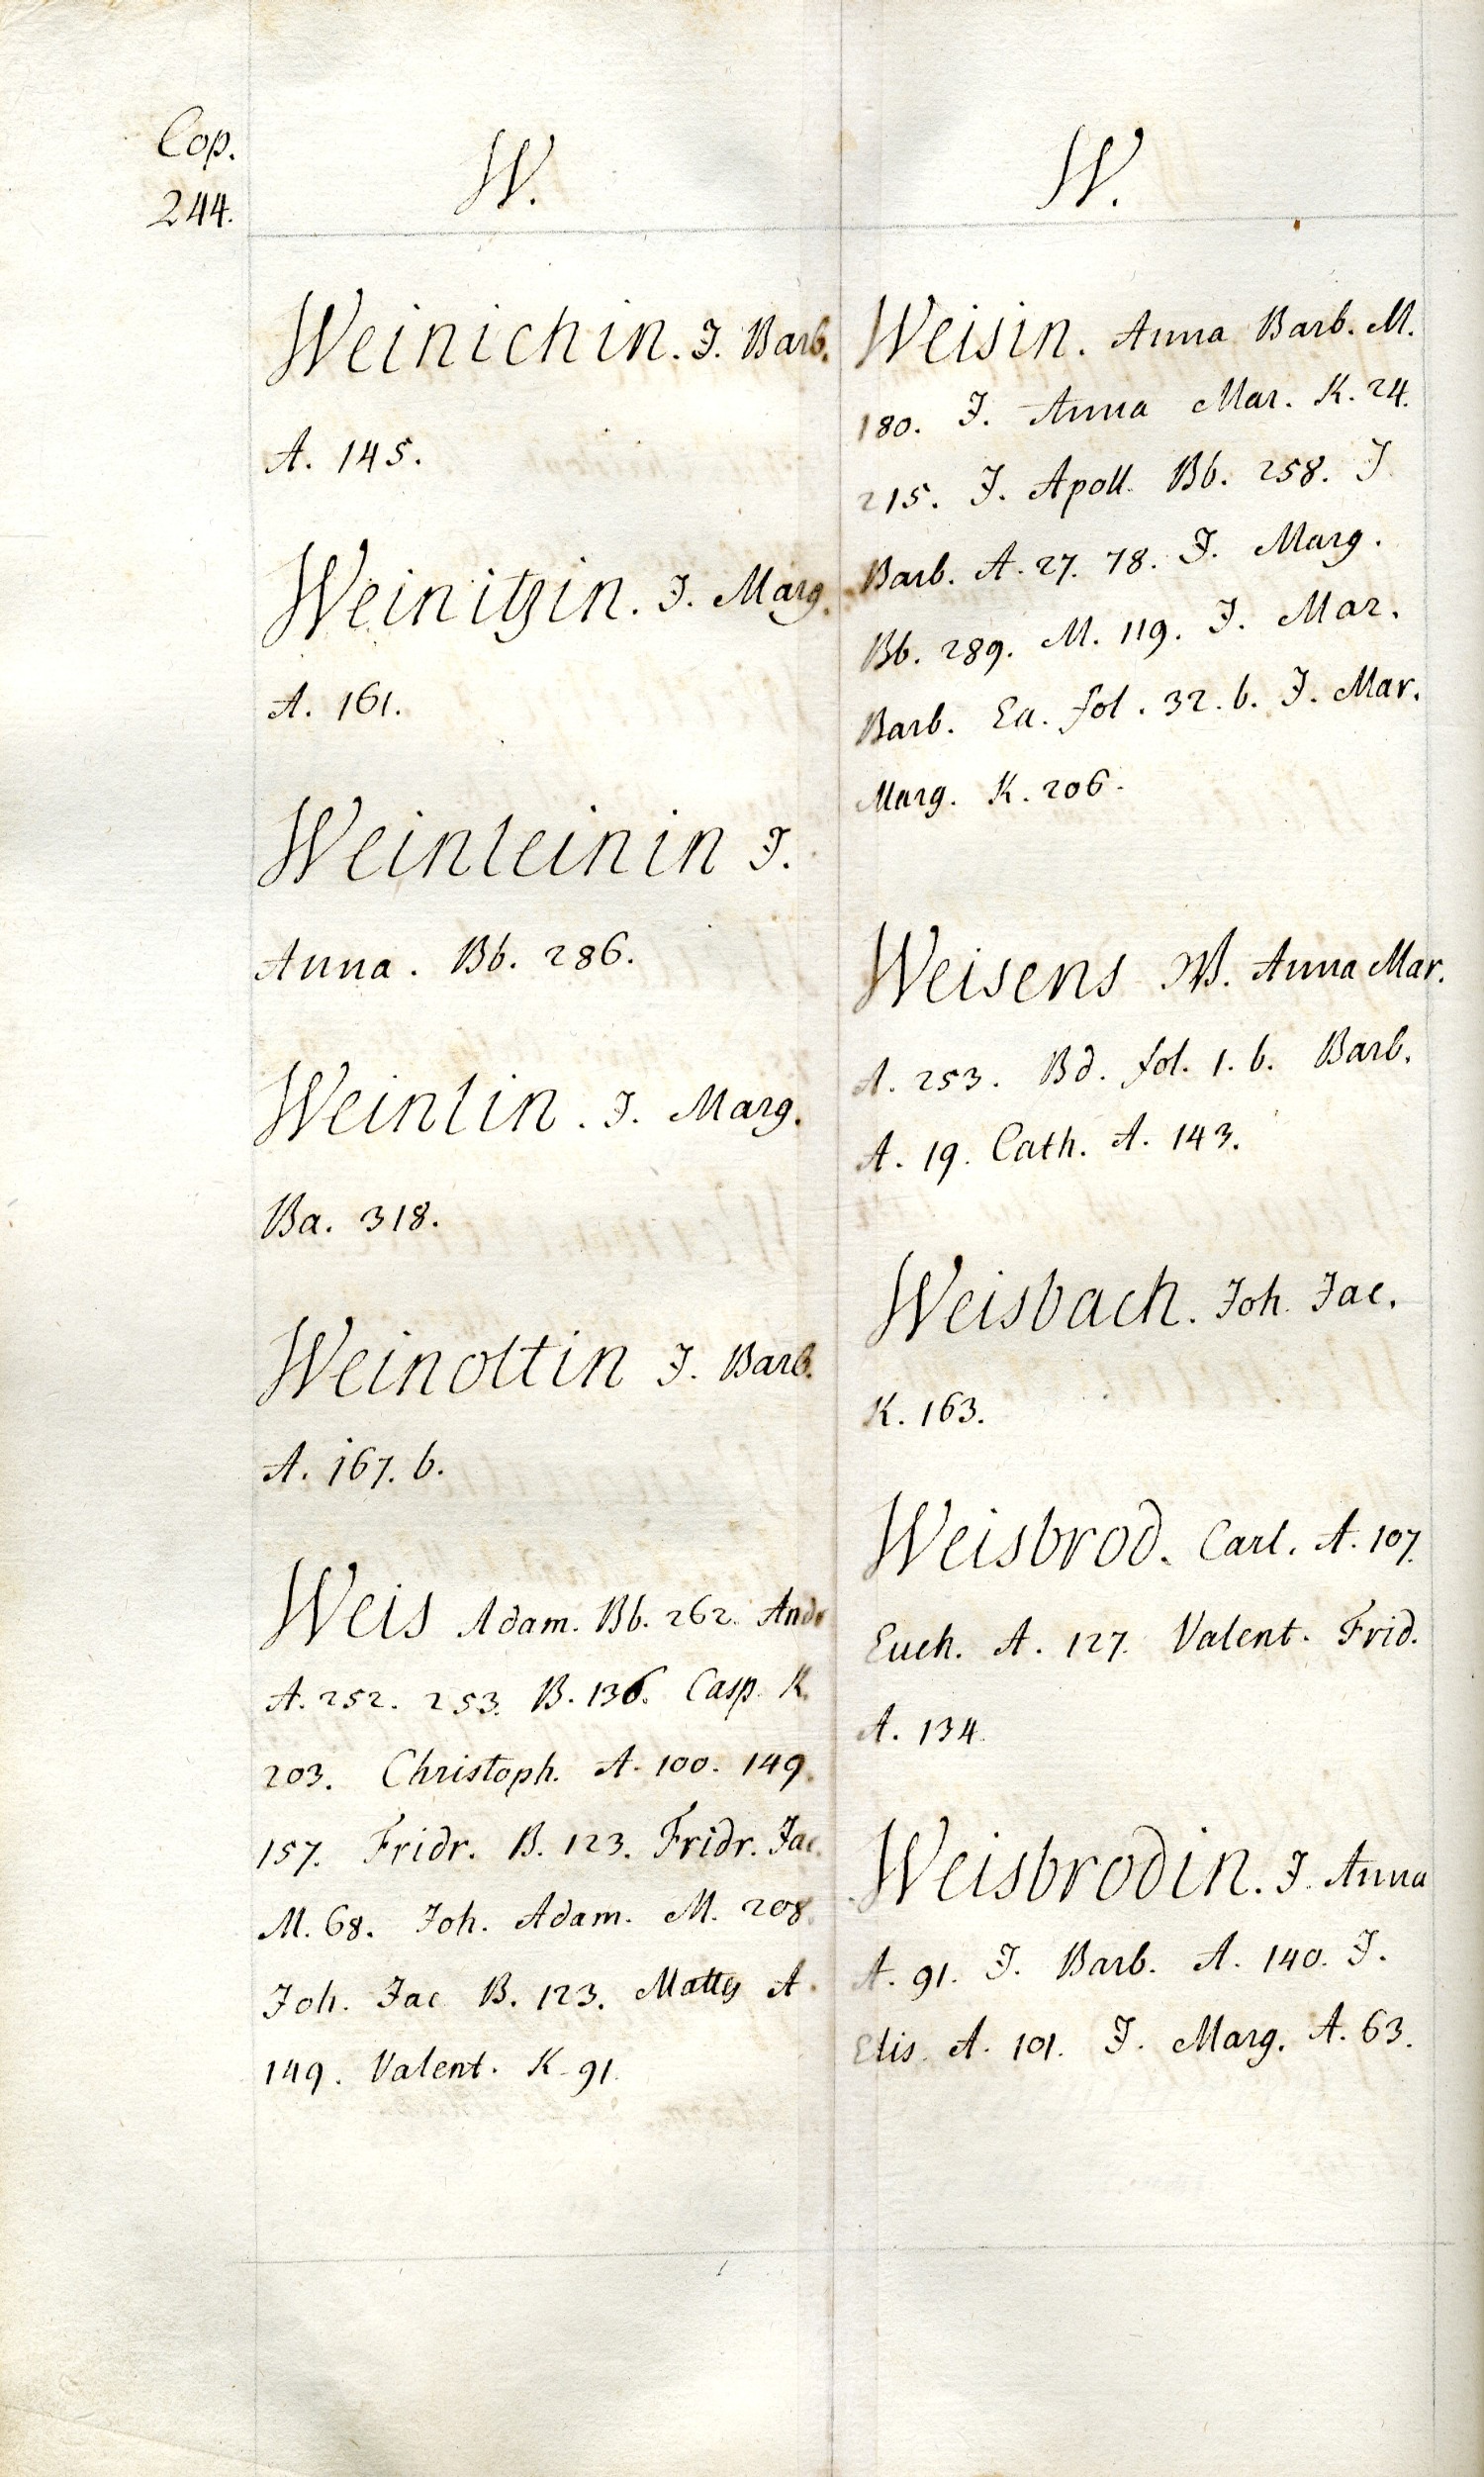 Cop.
244.
W.
Weinichin. J. Barb.
A. 145.
Weinitzin. J. Marg.
A. 161.
Weinleinin J.
Anna. Bb. 286.
Weinlin. J. Marg.
Ba. 318.
Weinoltin J. Barb.
A. 167. b.
Weis Adam. Bb. 262. Andr
A. 252. 253. B. 136. Casp. K.
203. Christoph. A. 100. 149.
157. Fridr. B. 123. Fridr. Jac.
M. 68. Joh. Adam. M. 208.
Joh. Jac B. 123. Matts A.
149. Valent. K. 91.
W.
Weisin. Anna Barb. M.
180. J. Anna Mar. K. 24.
215. J. Apoll. Bb. 258. J.
Barb. A. 27. 78. J. Marg.
Bb. 289. M. 119. J. Mar.
Barb. Ea. fol. 32. b. J. Mar.
Marg. K. 206.
Weisens W. Anna Mar.
A. 253. Bd. fol. 1. b. Barb.
A. 19. Cath. A. 143.
Weisbach. Joh. Jac.
K. 163.
Weisbrod. Carl. A. 107.
Euch. A. 127. Valent. Frid.
A. 134.
Weisbrodin. J. Anna
A. 91. J. Barb. A. 140. J.
Elis. A. 101. J. Marg. A. 63.